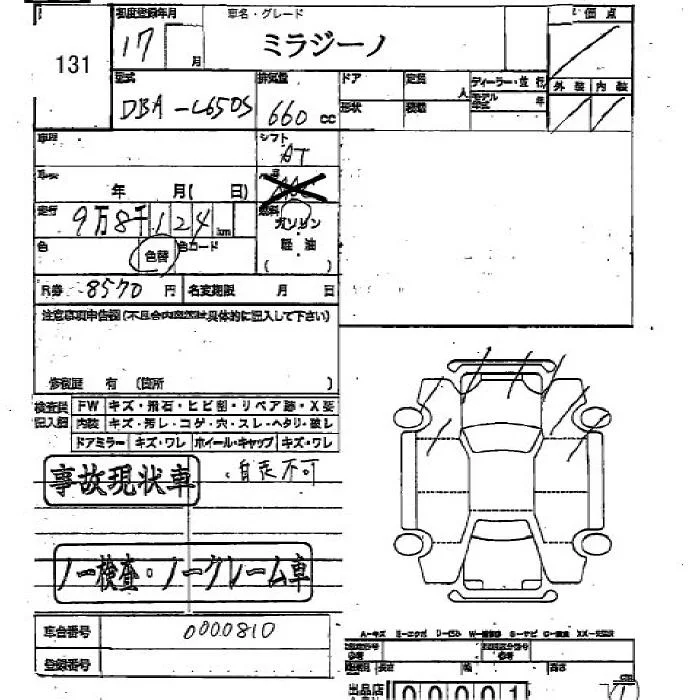 131
初度登録年月 車名・グレード 評価点
17 月 ミラジーノ
型式 排気量 ドア 定員 ディーラー・並行
人 モデル年式 年 外装 内装
DBA-L650S 660cc 形状 積載
車歴 シフト
AT
車検
年 月( 日)
走行 9万8千124km 燃料 ガソリン
色 色替 色コード 軽油
( )
R券 8570円 名変期限 月 日
注意事項申告欄(不具合内容等は具体的に記入して下さい)
修復歴 有 (箇所 )
検査員記入欄 FW キズ・飛石・ヒビ割・リペア跡・X要
内装 キズ・汚レ・コゲ・穴・スレ・ヘタリ・破レ
ドアミラー キズ・ワレ ホイール・キャップ キズ・ワレ
事故現状車 自走不可
ノー検査・ノークレーム車
車台番号 0000810
登録番号
出品店 00001